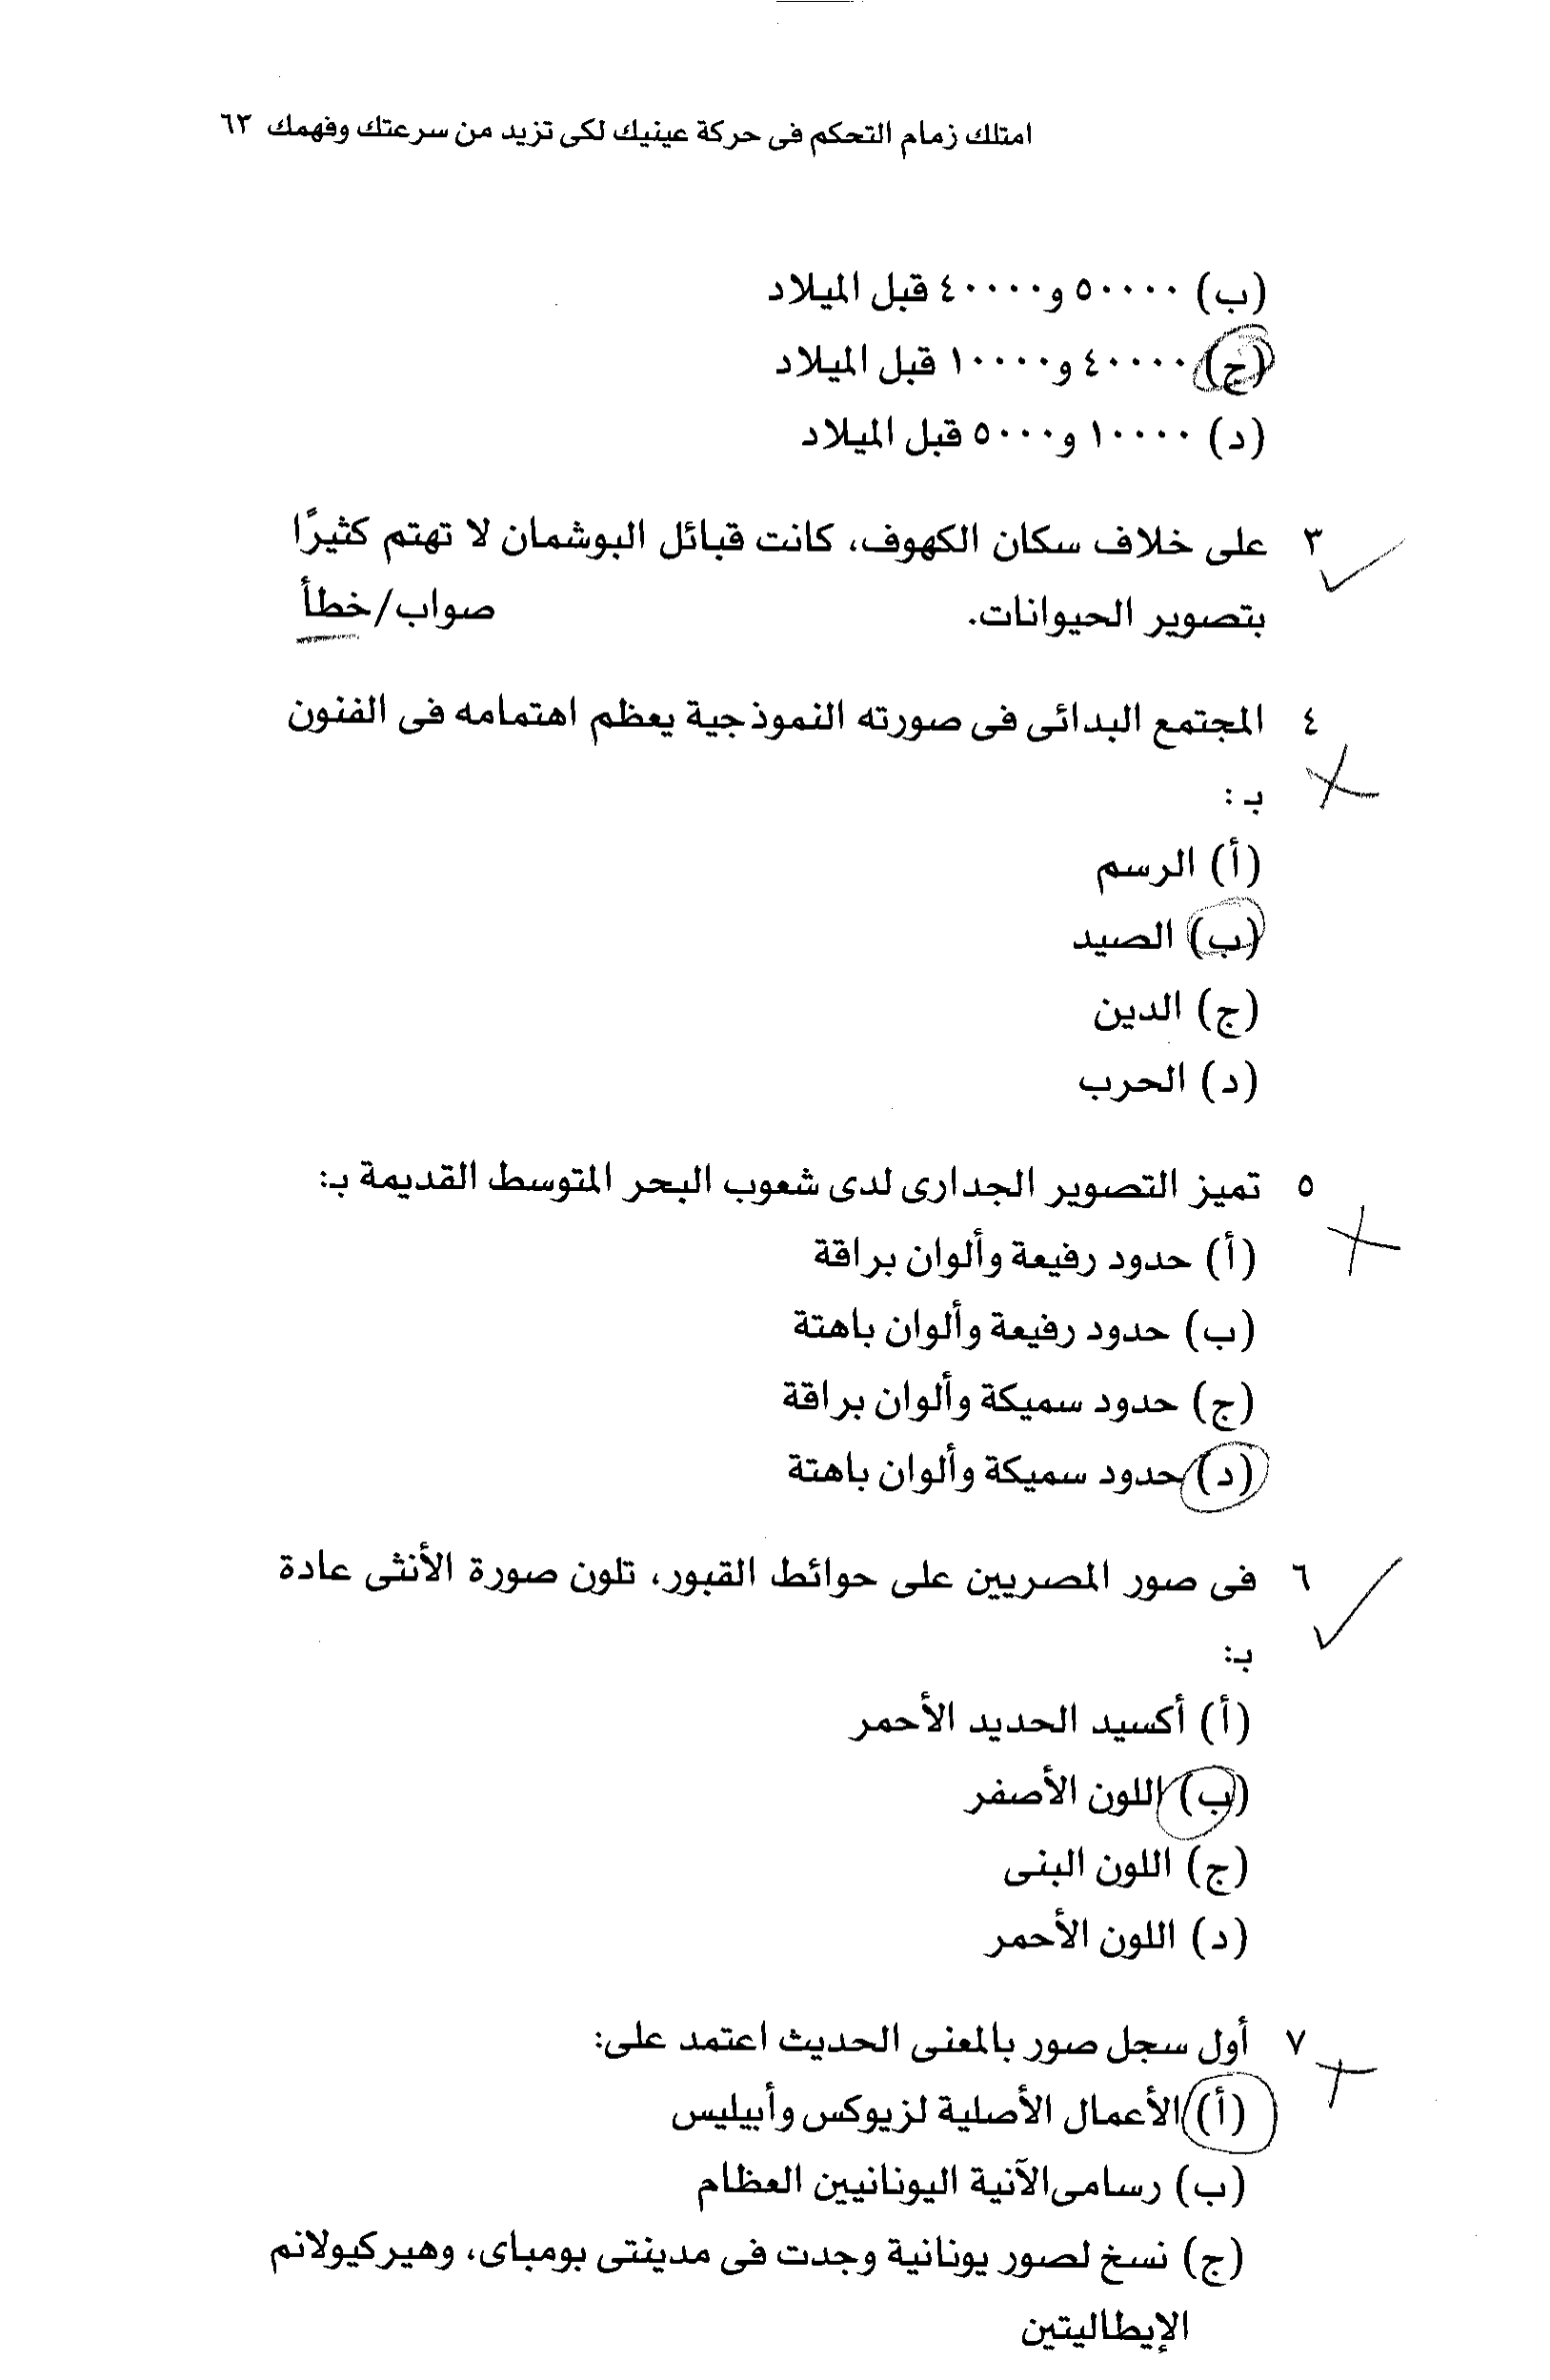 امتلك زمام التحكم فى حركة عينيك لكى تزيد من سرعتك وفهمك ٦٣
(ب) ٥٠٠٠٠ و٤٠٠٠٠ قبل الميلاد
(ج) ٤٠٠٠٠ و١٠٠٠٠ قبل الميلاد
(د) ١٠٠٠٠ و٥٠٠٠ قبل الميلاد
٣ على خلاف سكان الكهوف، كانت قبائل البوشمان لا تهتم كثيرًا
بتصوير الحيوانات. صواب/خطأ
٤ المجتمع البدائى فى صورته النموذجية يعظم اهتمامه فى الفنون
بـ :
(أ) الرسم
(ب) الصيد
(ج) الدين
(د) الحرب
٥ تميز التصوير الجدارى لدى شعوب البحر المتوسط القديمة بـ:
(أ) حدود رفيعة وألوان براقة
(ب) حدود رفيعة وألوان باهتة
(ج) حدود سميكة وألوان براقة
(د) حدود سميكة وألوان باهتة
٦ فى صور المصريين على حوائط القبور، تلون صورة الأنثى عادة
بـ:
(أ) أكسيد الحديد الأحمر
(ب) اللون الأصفر
(ج) اللون البنى
(د) اللون الأحمر
٧ أول سجل صور بالمعنى الحديث اعتمد على:
(أ) الأعمال الأصلية لزيوكس وأبيليس
(ب) رسامى الآنية اليونانيين العظام
(ج) نسخ لصور يونانية وجدت فى مدينتى بومباى، وهيركيولانم
الإيطاليتين